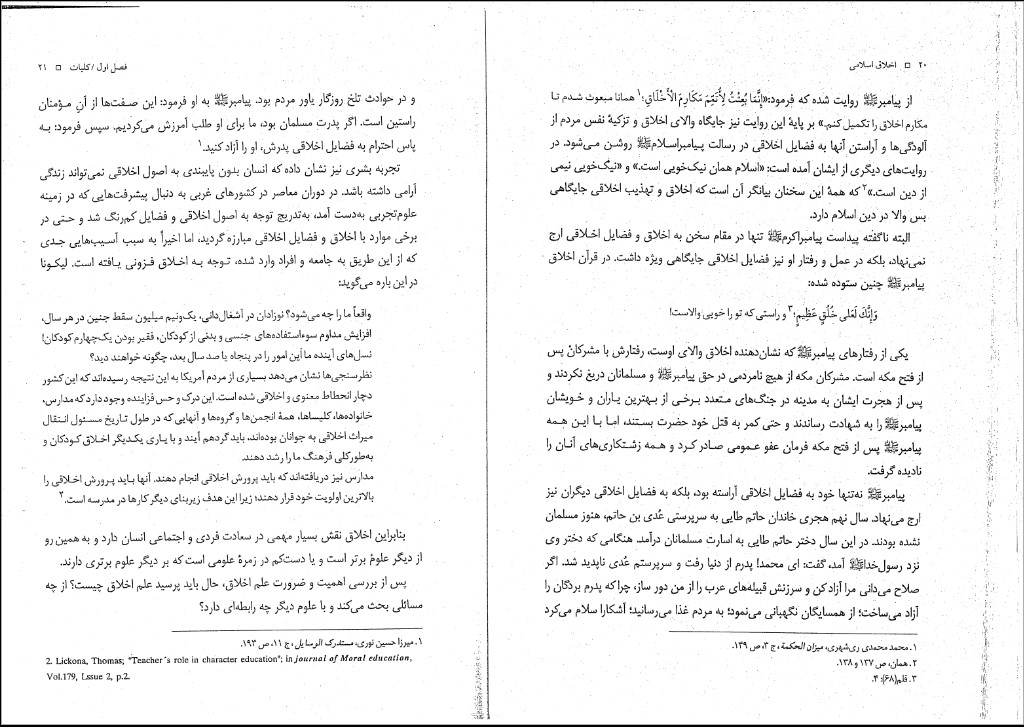 ۲۰ □ اخلاق اسلامی
از پیامبرﷺ روایت شده که فرمود: «إنَّمَا بُعِثْتُ لِأُتَمِّمَ مَکَارِمَ الْأَخْلَاقِ؛۱ همانا مبعوث شدم تا
مکارم اخلاق را تکمیل کنم.» بر پایهٔ این روایت نیز جایگاه والای اخلاق و تزکیهٔ نفس مردم از
آلودگی‌ها و آراستن آنها به فضایل اخلاقی در رسالت پیامبراسلامﷺ روشن می‌شود. در
روایت‌های دیگری از ایشان آمده است: «اسلام همان نیک‌خویی است.» و «نیک‌خویی نیمی
از دین است.»۲ که همهٔ این سخنان بیانگر آن است که اخلاق و تهذیب اخلاقی جایگاهی
بس والا در دین اسلام دارد.
البته ناگفته پیداست پیامبراکرمﷺ تنها در مقام سخن به اخلاق و فضایل اخلاقی ارج
نمی‌نهاد، بلکه در عمل و رفتار او نیز فضایل اخلاقی جایگاهی ویژه داشت. در قرآن اخلاق
پیامبرﷺ چنین ستوده شده:
وَإِنَّکَ لَعَلى خُلُقٍ عَظِيمٍ؛۳ و راستی که تو را خویی والاست!
یکی از رفتارهای پیامبرﷺ که نشان‌دهنده اخلاق والای اوست، رفتارش با مشرکان پس
از فتح مکه است. مشرکان مکه از هیچ نامردمی در حق پیامبرﷺ و مسلمانان دریغ نکردند و
پس از هجرت ایشان به مدینه در جنگ‌های متعدد برخی از بهترین یاران و خویشان
پیامبرﷺ را به شهادت رساندند و حتی کمر به قتل خود حضرت بستند، اما با این همه
پیامبرﷺ پس از فتح مکه فرمان عفو عمومی صادر کرد و همه زشتکاری‌های آنان را
نادیده گرفت.
پیامبرﷺ نه‌تنها خود به فضایل اخلاقی آراسته بود، بلکه به فضایل اخلاقی دیگران نیز
ارج می‌نهاد. سال نهم هجری خاندان حاتم طایی به سرپرستی عُدی بن حاتم، هنوز مسلمان
نشده بودند. در این سال دختر حاتم طایی به اسارت مسلمانان درآمد. هنگامی که دختر وی
نزد رسول‌خداﷺ آمد، گفت: ای محمد! پدرم از دنیا رفت و سرپرستم عُدی ناپدید شد. اگر
صلاح می‌دانی مرا آزاد کن و سرزنش قبیله‌های عرب را از من دور ساز، چرا که پدرم بردگان را
آزاد می‌ساخت؛ از همسایگان نگهبانی می‌نمود؛ به مردم غذا می‌رسانید؛ آشکارا سلام می‌کرد
۱. محمد محمدی ری‌شهری، میزان الحکمة، ج ۳، ص ۱۳۹.
۲. همان، ص ۱۳۷ و ۱۳۸.
۳. قلم(۶۸): ۴.
فصل اول / کلیات □ ۲۱
و در حوادث تلخ روزگار یاور مردم بود. پیامبرﷺ به او فرمود: این صفت‌ها از آنِ مؤمنان
راستین است. اگر پدرت مسلمان بود، ما برای او طلب آمرزش می‌کردیم. سپس فرمود: به
پاس احترام به فضایل اخلاقی پدرش، او را آزاد کنید.۱
تجربه بشری نیز نشان داده که انسان بدون پایبندی به اصول اخلاقی نمی‌تواند زندگی
آرامی داشته باشد. در دوران معاصر در کشورهای غربی به دنبال پیشرفت‌هایی که در زمینه
علوم‌تجربی به‌دست آمد، به‌تدریج توجه به اصول اخلاقی و فضایل کم‌رنگ شد و حتی در
برخی موارد با اخلاق و فضایل اخلاقی مبارزه گردید، اما اخیراً به سبب آسیب‌هایی جدی
که از این طریق به جامعه و افراد وارد شده، توجه به اخلاق فزونی یافته است. لیکونا
در این باره می‌گوید:
واقعاً ما را چه می‌شود؟ نوزادان در آشغال‌دانی، یک‌ونیم میلیون سقط جنین در هر سال،
افزایش مداوم سوءاستفاده‌های جنسی و بدنی از کودکان، فقیر بودن یک‌چهارم کودکان!
نسل‌های آینده ما این امور را در پنجاه یا صد سال بعد، چگونه خواهند دید؟
نظرسنجی‌ها نشان می‌دهد بسیاری از مردم آمریکا به این نتیجه رسیده‌اند که این کشور
دچار انحطاط معنوی و اخلاقی شده است. این درک و حس فزاینده وجود دارد که مدارس،
خانواده‌ها، کلیساها، همهٔ انجمن‌ها و گروه‌ها و آنهایی که در طول تاریخ مسئول انتقال
میراث اخلاقی به جوانان بوده‌اند، باید گردهم آیند و با یاری یکدیگر اخلاق کودکان و
به‌طورکلی فرهنگ ما را رشد دهند.
مدارس نیز دریافته‌اند که باید پرورش اخلاقی انجام دهند. آنها باید پرورش اخلاقی را
بالاترین اولویت خود قرار دهند؛ زیرا این هدف زیربنای دیگر کارها در مدرسه است.۲
بنابراین اخلاق نقش بسیار مهمی در سعادت فردی و اجتماعی انسان دارد و به همین رو
از دیگر علوم برتر است و یا دست‌کم در زمرهٔ علومی است که بر دیگر علوم برتری دارند.
پس از بررسی اهمیت و ضرورت علم اخلاق، حال باید پرسید علم اخلاق چیست؟ از چه
مسائلی بحث می‌کند و با علوم دیگر چه رابطه‌ای دارد؟
۱. میرزا حسین نوری، مستدرک الوسایل، ج ۱۱، ص ۱۹۳.
2. Lickona, Thomas; "Teacher's role in character education"; in journal of Moral education,
Vol.179, Issue 2, p.2.